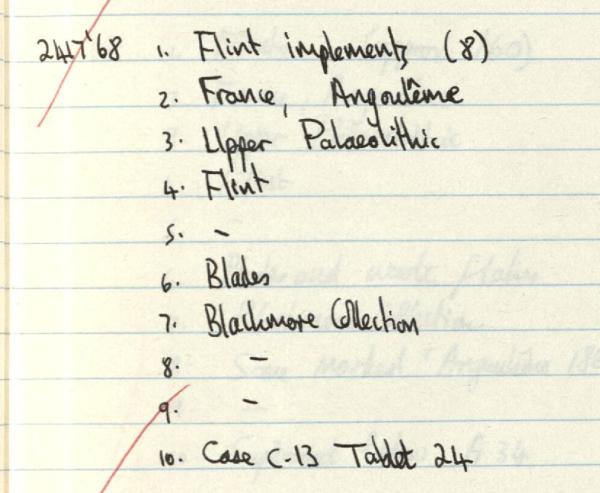 2417'68 1. Flint implements (8)
2. France, Angoulême
3. Upper Palaeolithic
4. Flint
5. -
6. Blades
7. Blackmore Collection
8. -
9. -
10. Case C-13 Tablet 24